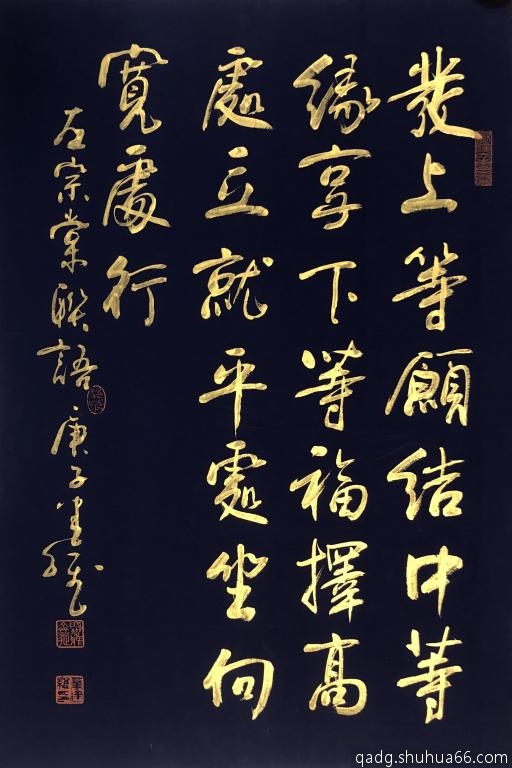 發上等願結中等
緣享下等福擇高
處立就平處坐向
寬處行
左宗棠聯語 庚子
qadg.shuhua66.com